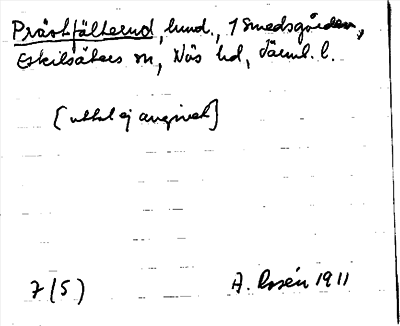 Prästfälterud, lund., 1 Smedsgården,
Eskilsäters sn, Näs hd, Värml. l.
[uttal ej angivet]
7 (5) A. Rosén 1911